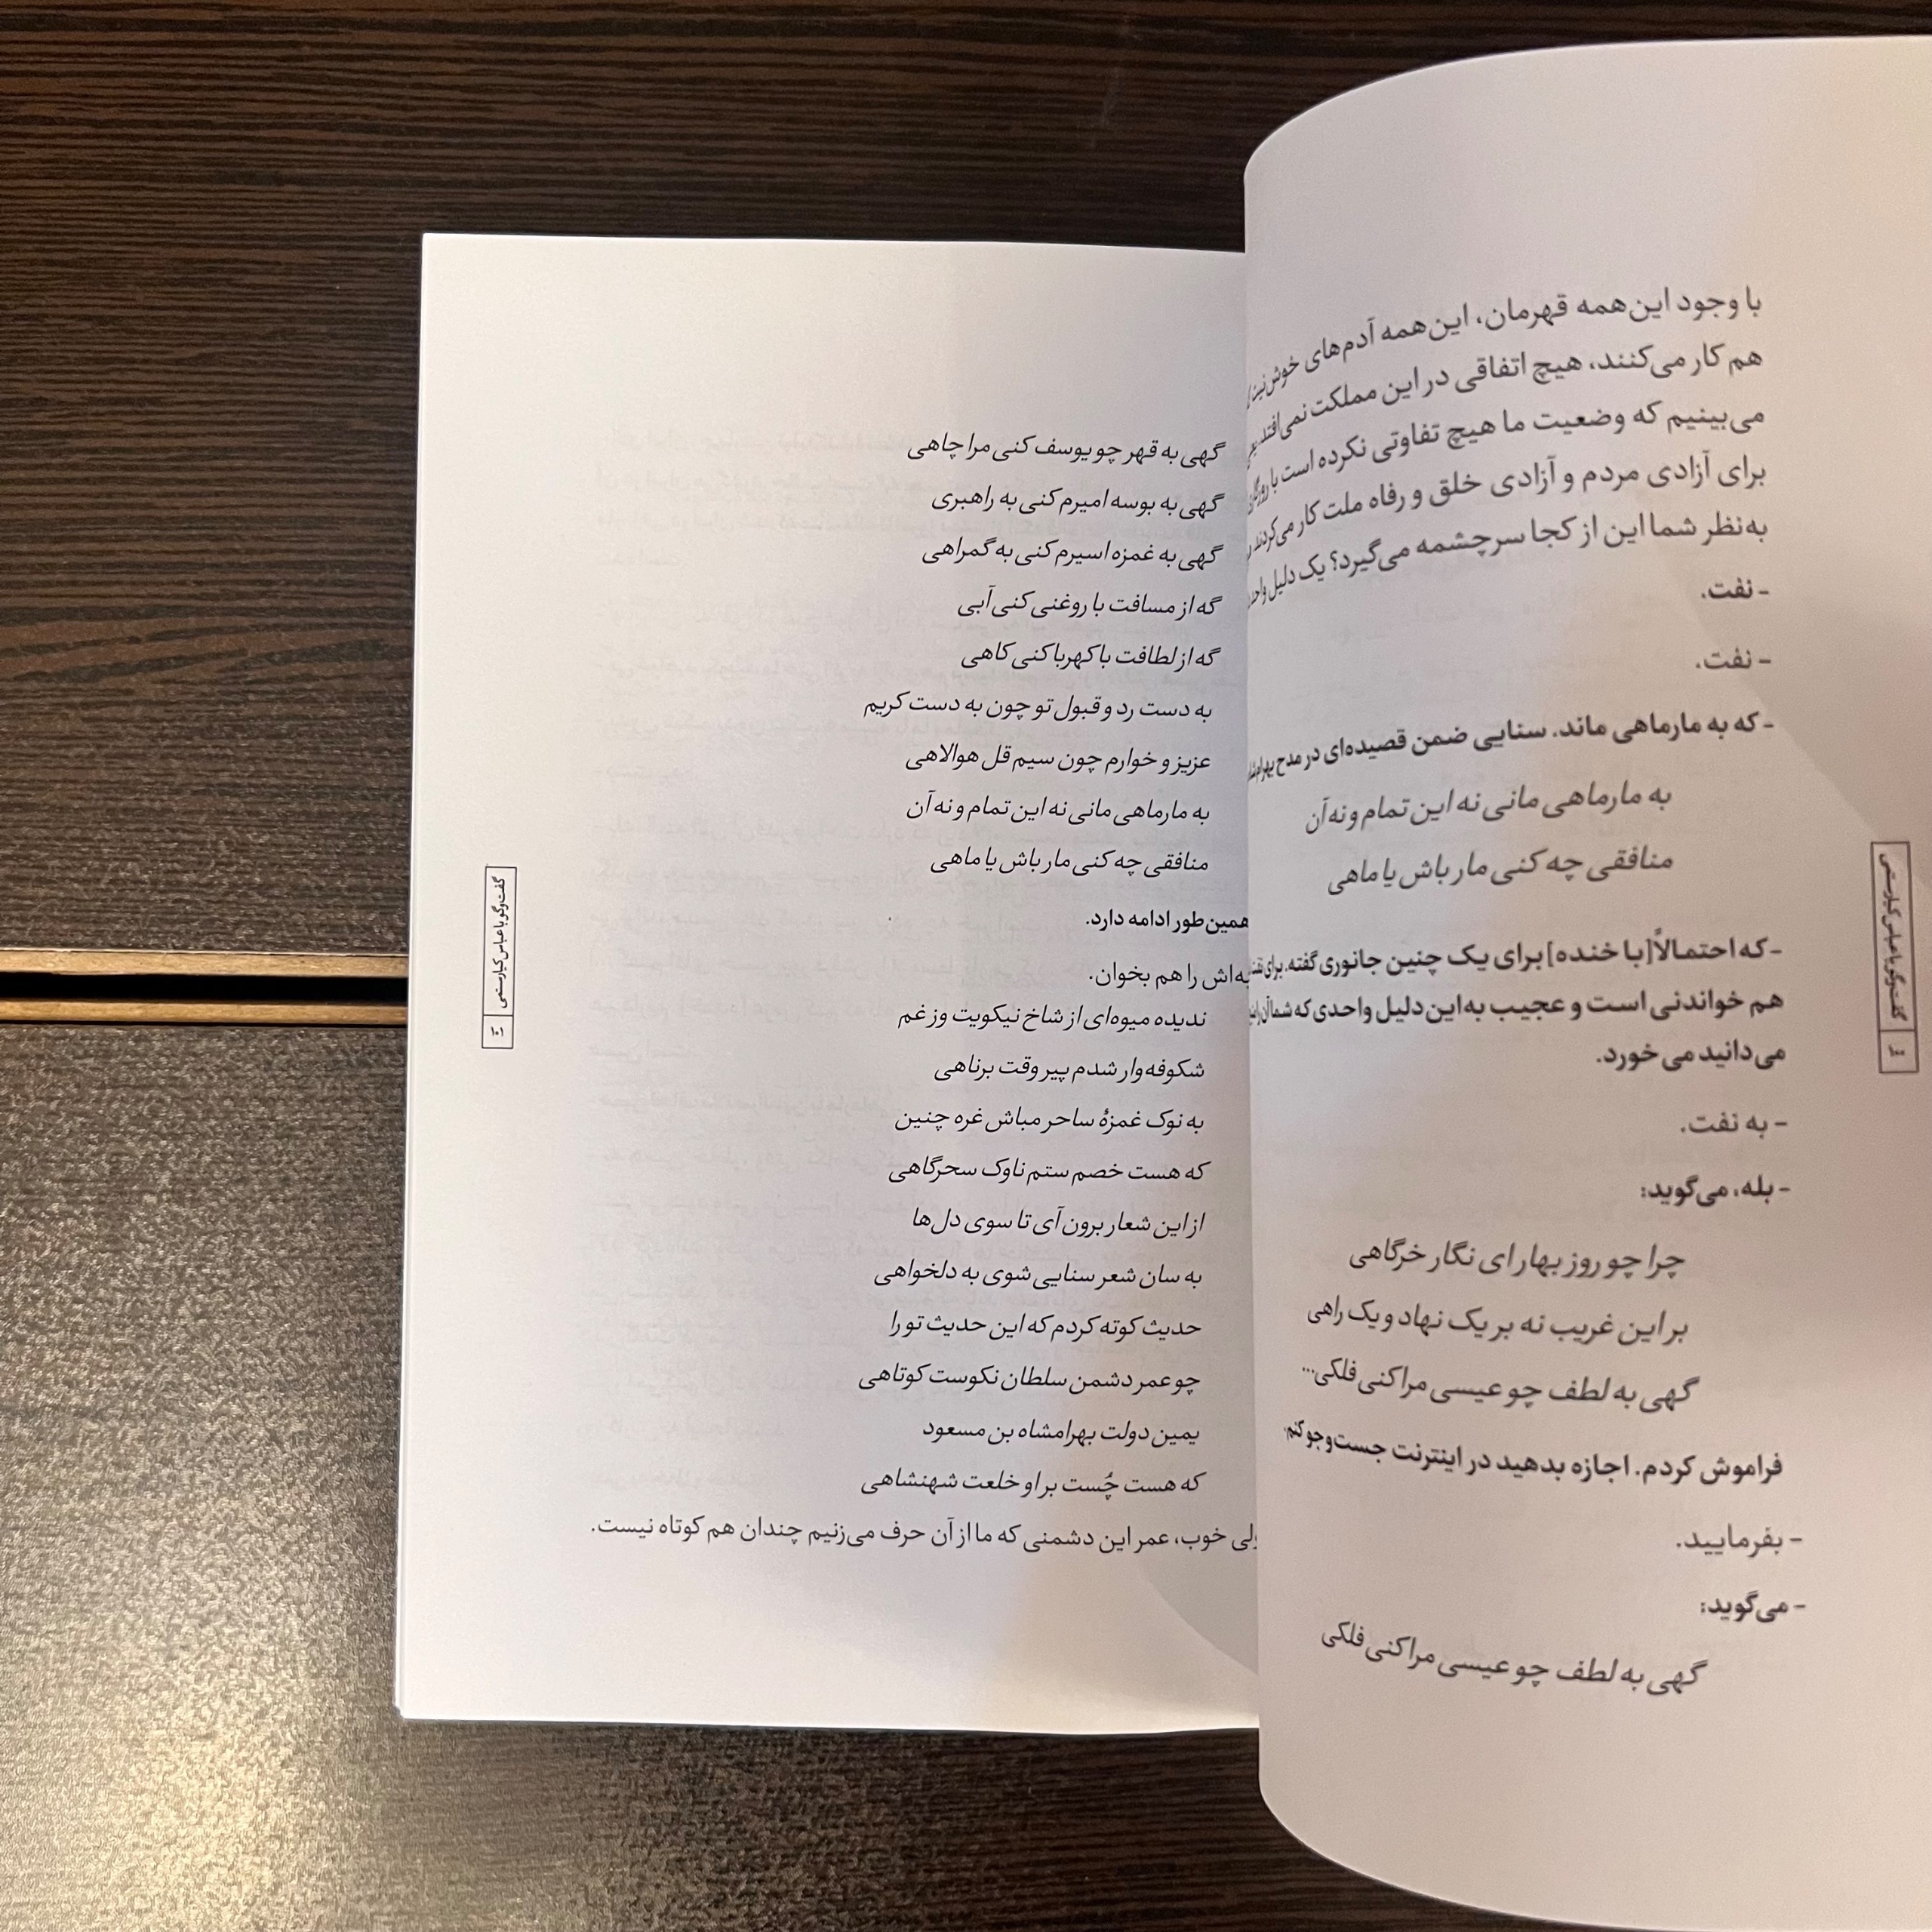 با وجود این‌همه قهرمان، این‌همه آدم‌های خوش‌نیت
هم کار می‌کنند، هیچ اتفاقی در این مملکت نمی‌افتد،
می‌بینیم که وضعیت ما هیچ تفاوتی نکرده است با
برای آزادی مردم و آزادی خلق و رفاه ملت کار می‌کردند،
به‌نظر شما این از کجا سرچشمه می‌گیرد؟ یک دلیل واحد
- نفت.
- نفت.
- که به مارماهی ماند. سنایی ضمن قصیده‌ای در مدح
به مارماهی مانی نه این تمام و نه آن
منافقی چه کنی مار باش یا ماهی
- که احتمالاً [با خنده] برای یک چنین جانوری گفته. برای
هم خواندنی است و عجیب به این دلیل واحدی که شما آن را
می‌دانید می‌خورد.
- به نفت.
- بله، می‌گوید:
چرا چو روز بهار ای نگار خرگاهی
بر این غریب نه بر یک نهاد و یک راهی
گهی به لطف چو عیسی مرا کنی فلکی...
فراموش کردم. اجازه بدهید در اینترنت جست‌وجو کنم.
- بفرمایید.
- می‌گوید:
گهی به لطف چو عیسی مرا کنی فلکی
گفت‌وگو با عباس کیارستمی
گهی به قهر چو یوسف کنی مرا چاهی
گهی به بوسه امیرم کنی به راهبری
گهی به غمزه اسیرم کنی به گمراهی
گه از مسافت با روغنی کنی آبی
گه از لطافت با کهربا کنی کاهی
به دست رد و قبول تو چون به دست کریم
عزیز و خوارم چون سیم قل هوالاهی
به مارماهی مانی نه این تمام و نه آن
منافقی چه کنی مار باش یا ماهی
همین‌طور ادامه دارد.
را هم بخوان.
ندیده میوه‌ای از شاخ نیکویت وز غم
شکوفه‌وار شدم پیر وقت برناهی
به نوک غمزهٔ ساحر مباش غره چنین
که هست خصم ستم ناوک سحرگاهی
از این شعار برون آی تا سوی دل‌ها
به سان شعر سنایی شوی به دلخواهی
حدیث کوته کردم که این حدیث تو را
چو عمر دشمن سلطان نکوست کوتاهی
یمین دولت بهرامشاه بن مسعود
که هست چُست بر او خلعت شهنشاهی
ولی خوب، عمر این دشمنی که ما از آن حرف می‌زنیم چندان هم کوتاه نیست.
گفت‌وگو با عباس کیارستمی